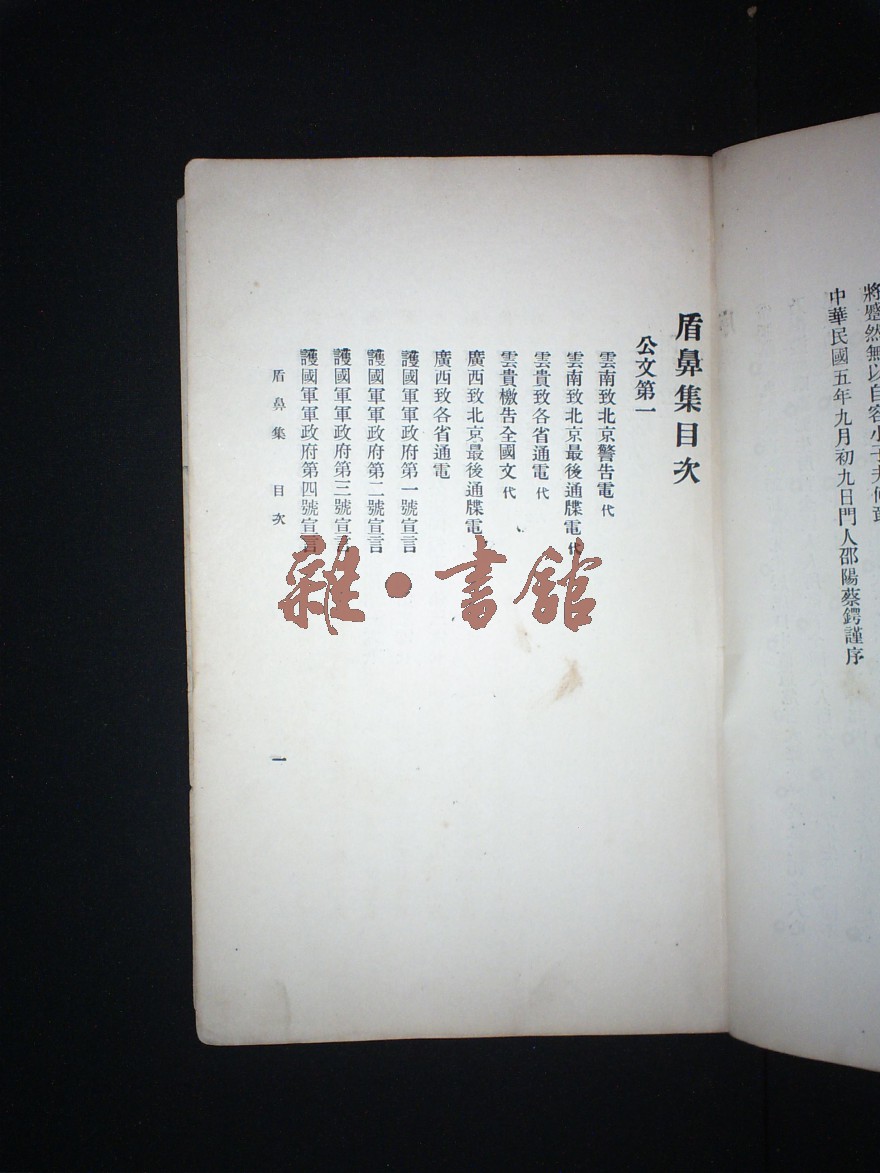 將蹙然無以自容小子夫何
中華民國五年九月初九日門人邵陽蔡鍔謹序
盾鼻集目次
公文第一
雲南致北京警告電代
雲南致北京最後通牒電代
雲貴致各省通電代
雲貴檄告全國文代
廣西致北京最後通牒電
廣西致各省通電
護國軍軍政府第一號宣言
護國軍軍政府第二號宣言
護國軍軍政府第三號宣言
護國軍軍政府第四號宣言
盾鼻集 目次 一
雜·書館